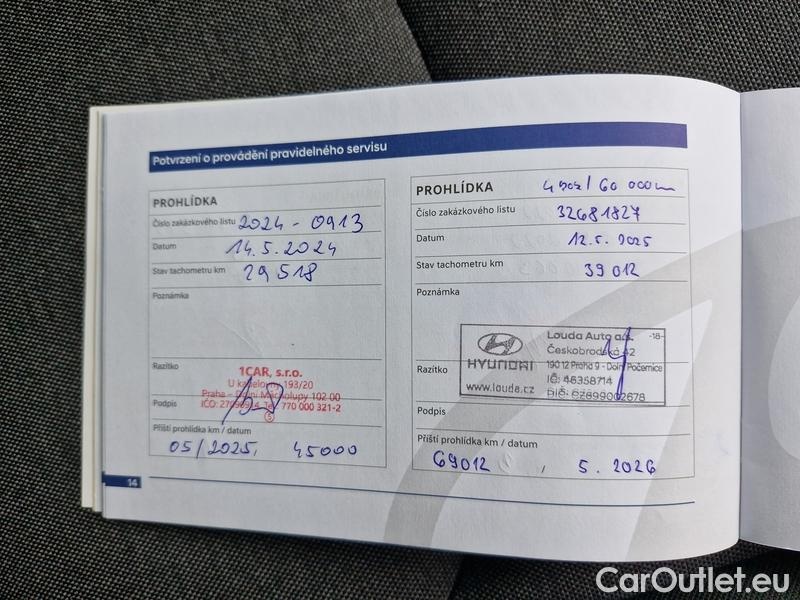 Potvrzení o provádění pravidelného servisu
PROHLÍDKA
Číslo zakázkového listu 2024 - 0913
Datum 14.5.2024
Stav tachometru km 29518
Poznámka
Razítko
1CAR, s.r.o.
193/20
Praha - Dolní Měcholupy 102 00
Podpis
Tel: 770 000 321-2
Příští prohlídka km / datum
05/2025, 45000
14
PROHLÍDKA 60 000km
Číslo zakázkového listu 32681827
Datum 12.5.2025
Stav tachometru km 39 012
Poznámka
Razítko
HYUNDAI
www.louda.cz
Louda Auto a.s. -18-
Českobrodská 42
190 12 Praha 9 - Dolní Počernice
IČ: 46358714
DIČ: CZ699002678
Podpis
Příští prohlídka km / datum
69012, 5. 2026
CarOutlet.eu